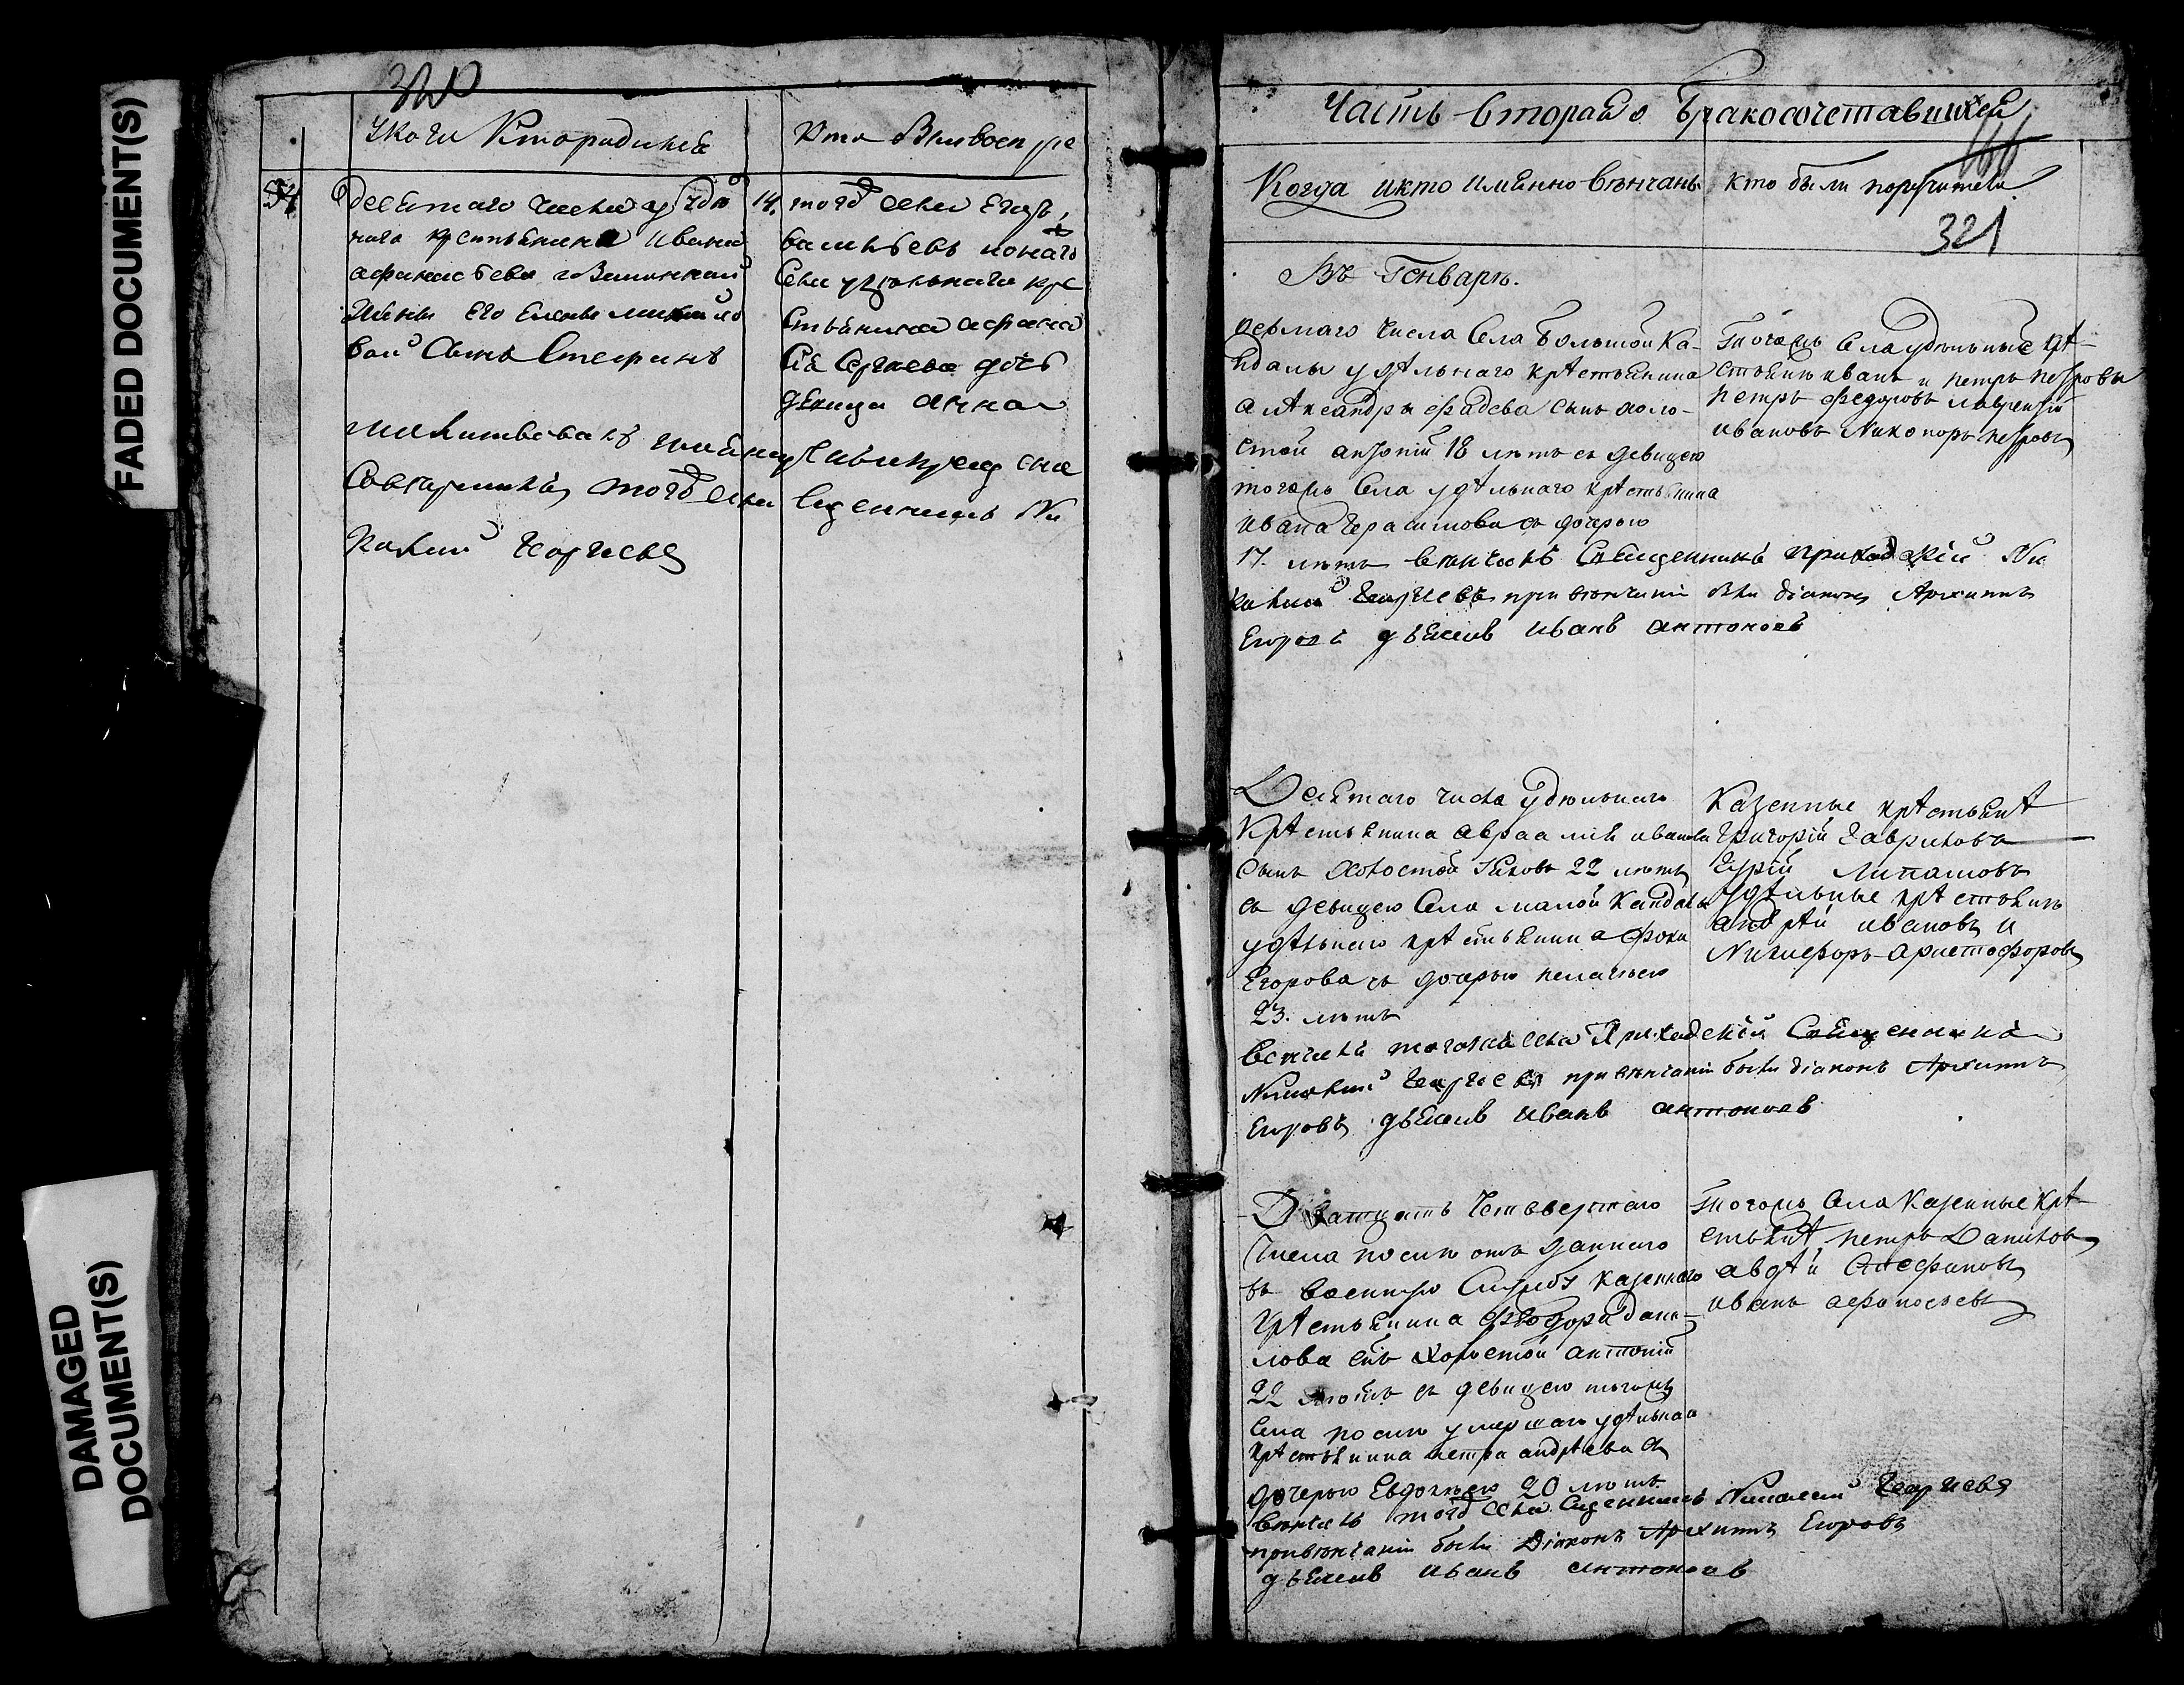 FADED DOCUMENT(S)
DAMAGED
DOCUMENT(S)
320
У кого Кто родился
Кто Были восп
54
десятаго числа удѣл
14.
наго крестьянина Ивана
Афанасьева
Жены его Елены
вой Сынъ Стефанъ
тогд села Егоръ
Васильевъ
Села удѣльнаго кре
стьянина Афана
сія Сергѣева дочь
дѣвица Анна
Молитвовалъ
Совершилъ тогд села Сщенникъ Ни
колай Георгіевъ
Часть вторая о бракосочетавшихся
166
Когда и кто имянно вѣнчаны
кто были поручители
321
Въ Генварѣ.
перваго числа Села Большой Ка-
ндалы удѣльнаго крестьянина
Александра Фадѣева сынъ холо-
стой Антоній 18 лѣтъ съ дѣвицею
тогожъ Села удѣльнаго крестьянина
Ивана Герасимова съ дочерью
17. лѣтъ вѣнчалъ Священникъ приходскій Ни
колай Георгіевъ при вѣнчаніи были діаконъ Архиппъ
Егоровъ дьячекъ Иванъ Антоновъ
Тогожъ Села удѣльные кре-
стьяне Иванъ и Петръ Петровы
Петръ Федоровъ Лаврентій
Ивановъ Никоноръ Петровъ
Десятаго числа удѣльнаго
крестьянина Авраамія Иванова
сынъ холостой Яковъ 22 лѣтъ
съ дѣвицею Села Малой Кандалы
удѣльнаго крестьянина Фоки
Егорова съ дочерью Пелагіею
23. лѣтъ
Вѣнчалъ тогожъ села Приходскій Священникъ
Николай Георгіевъ при вѣнчаніи были діаконъ Архиппъ
Егоровъ дьячекъ Иванъ Антоновъ
Казенные крестьяне
Григорій Гавриловъ
Гурій
Удѣльные крестьянъ
Андрей Ивановъ и
Никифоръ Аристофоровъ
Дватцать Четвертаго
Числа послѣ отъ даннаго
въ военную Службу казеннаго
крестьянина Феодора Дани-
лова снъ холостой Антоній
22 лѣтъ съ дѣвицею тогожъ
Села послѣ умершаго удѣльнаго
крестьянина Петра Андреева съ
дочерью Евдокіею 20 лѣтъ.
Вѣнчалъ тогд Села Сщенникъ Николай Георгіевъ
при вѣнчаніи были Діаконъ Архиппъ Егоровъ
дьячекъ Иванъ Антоновъ
Тогожъ Села Казенные кре-
стьяне Петръ Даниловъ
Авдей Стефановъ
Иванъ Афонасьевъ